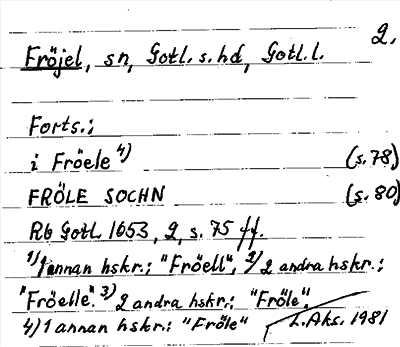 2.
Fröjel, sn, Gotl. s. hd, Gotl. l.
Forts.:
i Fröele 4) (s. 78)
FRÖLE SOCHN (s. 80)
Rb Gotl 1653, 2, s. 75 ff.
1) 1 annan hskr.: "Fröell", 2) 2 andra hskr.:
"Fröelle". 3) 2 andra hskr.: "Fröle".
4) 1 annan hskr.: "Fröle" L. Aks. 1981